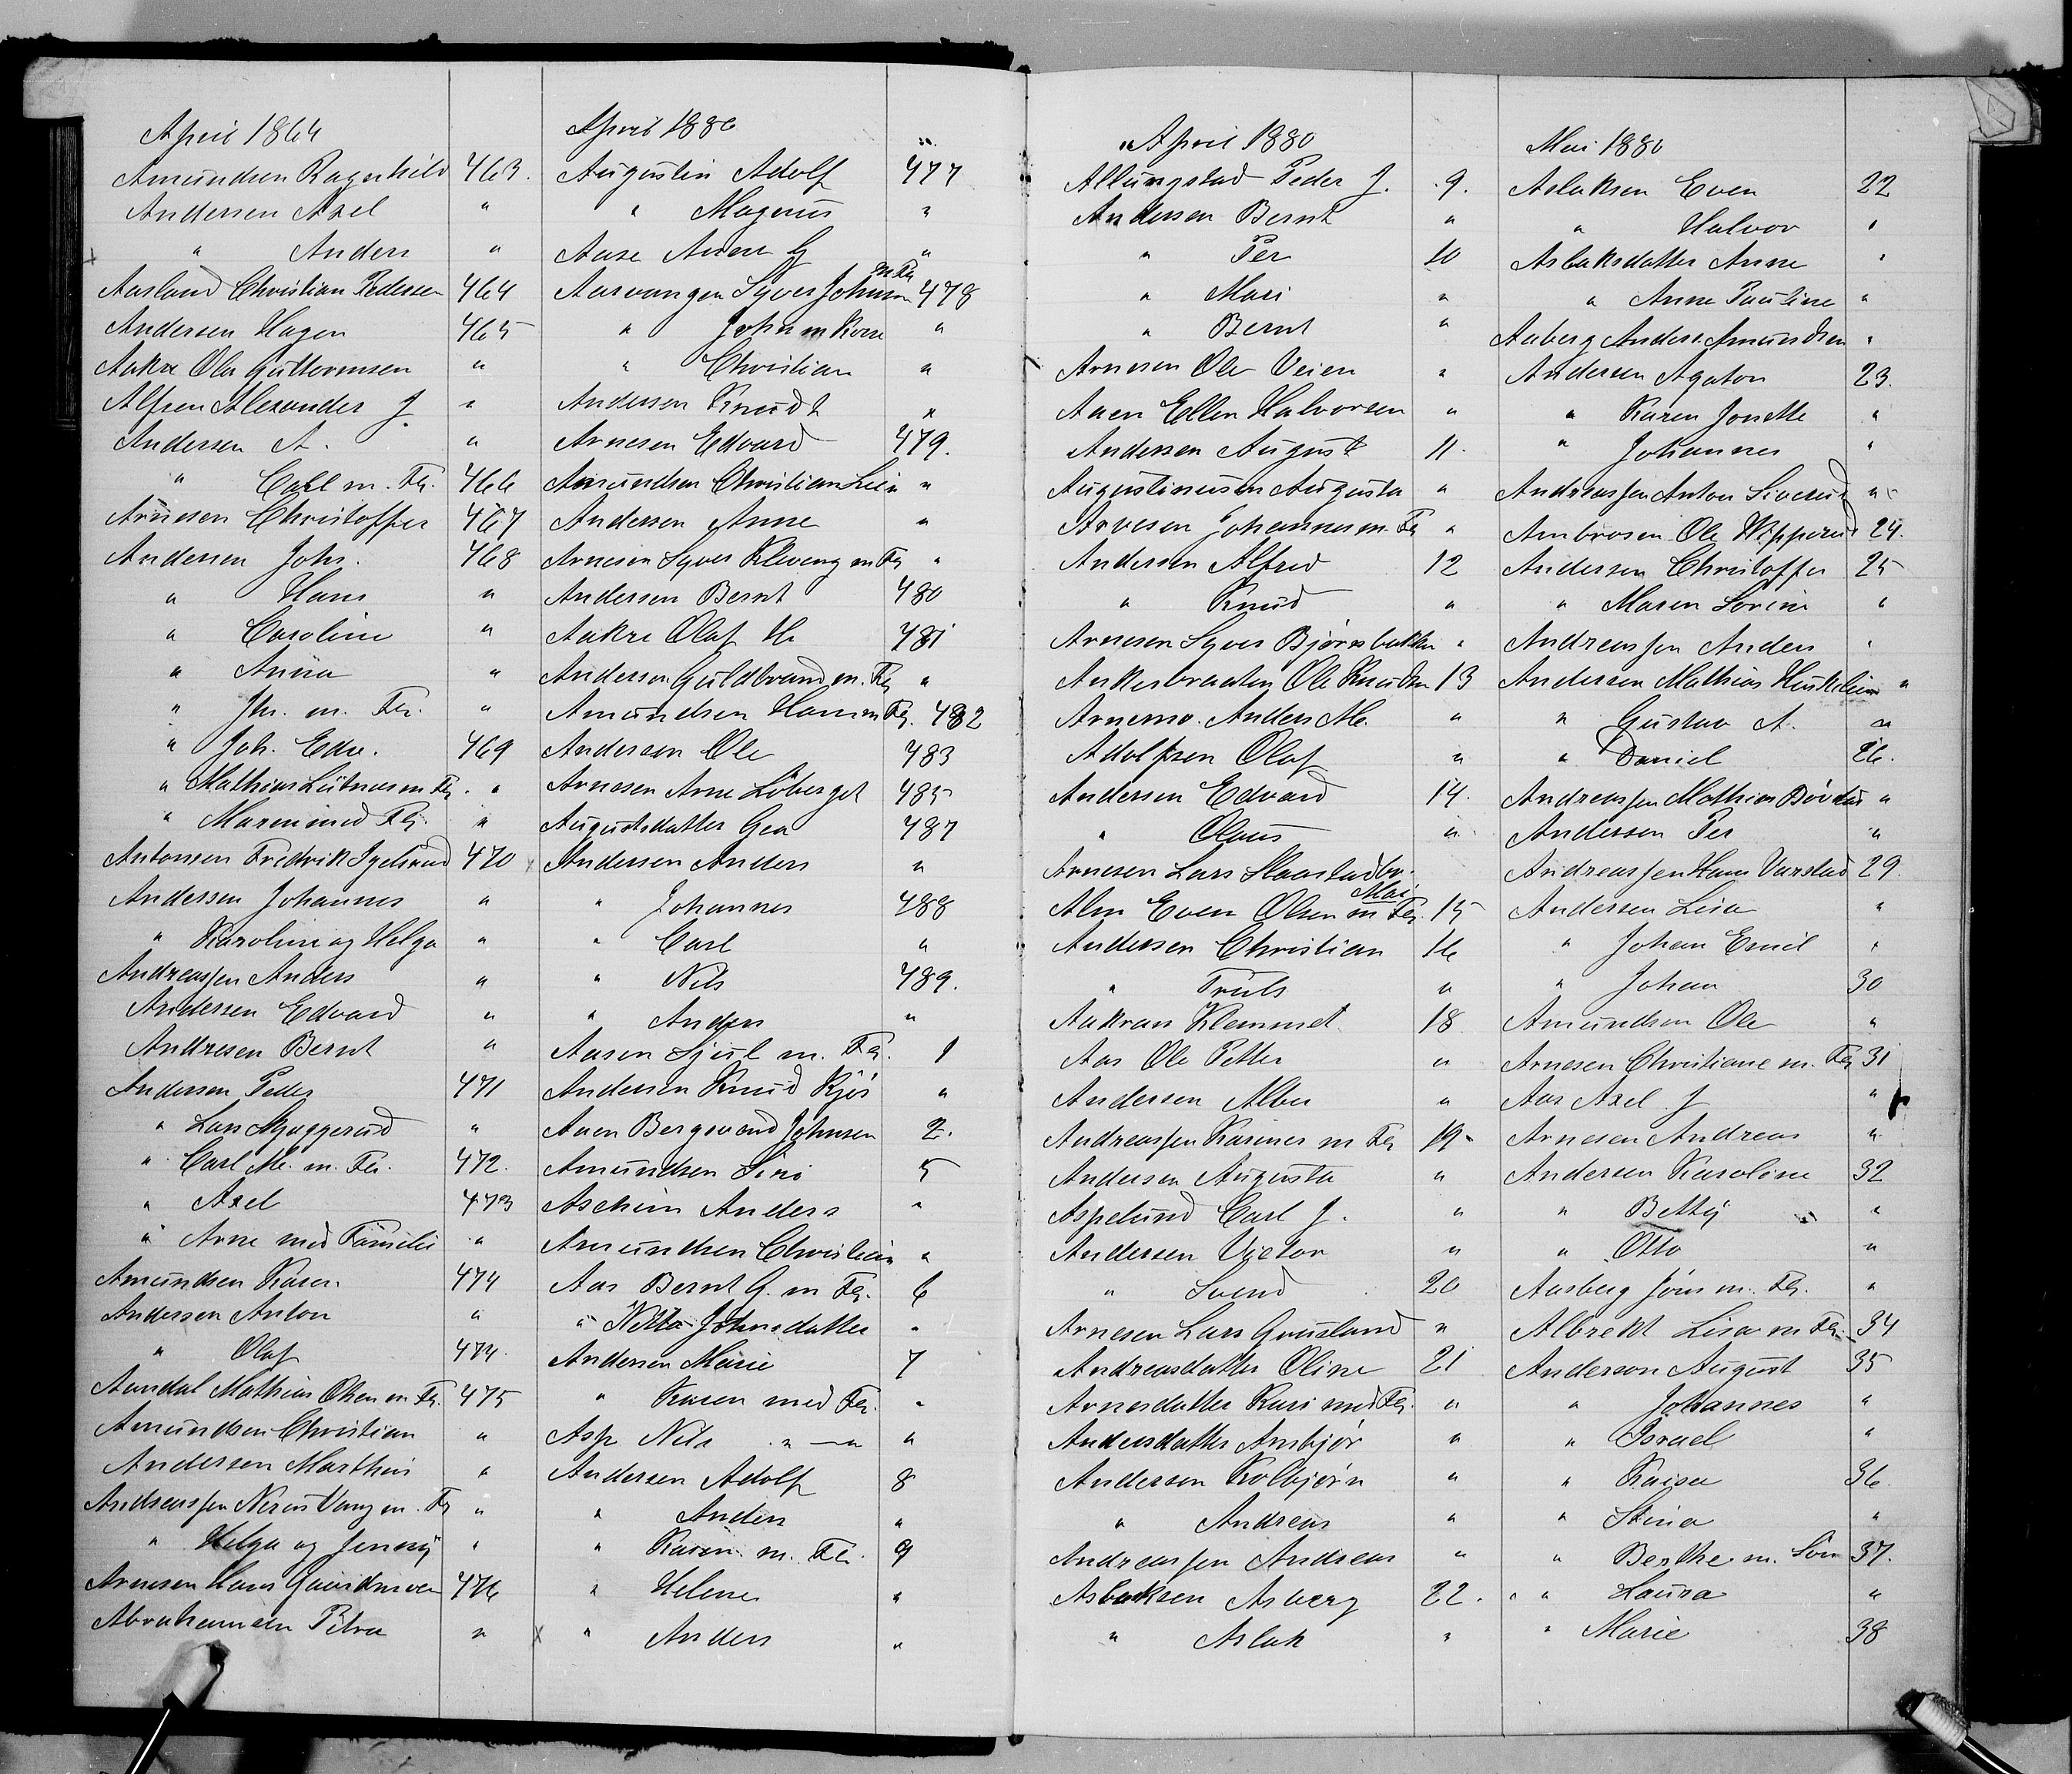 April 1864
Amundsen Ragnhild 463.
Andersen Axel "
" Anders "
Aasland Christian Pedersen 464
Andersen Hagen 465
Aakre Ole Guttormsen "
Alfsen Alexander J. "
Andersen A. "
" Carl m. Fa. 466
Arnesen Christoffer 467
Andersen Johs. 468
" Hans "
" Caroline "
" Anna "
" Jhs. m. Fa. "
" Joh. Edv. 469
" Mathias m Fa. "
" Maren med Fa. "
Antonsen Fredrik Igelsrud 470
Andersen Johannes "
" Karoline og Helga "
Andreassen Anders "
Andersen Edvard "
Andresen Bernt "
Andersen Peder 471
" Lars Myggerud "
" Carl M. m. Fa. 472.
" Axel 473
" Arne med Familie "
Amundsen Karen 474
Andersen Anton "
" Olaf 474.
Aamdal Mathias Olsen m Fa. 475
Amundsen Christian "
Andersen Marthin "
Andreassen Vang m. Fa "
" Helga og Jenny "
Arnesen Hans 476
Abrahamsen Petra "
April 1880
Augustin Adolf 477
" Magnus "
Aase Anne G "
Aarvangen Syver Johnsen m Fa 478
" John m Kone "
" Christian "
Andersen Knudt "
Arnesen Edvard 479.
Amundsen Christian Lein "
Andersen Anne "
Arnesen Syver Kleveng m Fa "
Andersen Bernt 480
Aakre Olaf H. 481
Andersen Guldbrand m. Fa "
Amundsen Hans m Fa. 482
Andersen Ole 483
Arnesen Arne Löberget 485
Augustsdatter Gea 487
x Andersen Anders "
" Johannes 488
" Carl "
" Nils 489.
" Anders "
Aasen Sjul m. Fa. 1
Andersen Knud Kjös "
Aaen Bergsvend Johnsen 2.
Amundsen Siri 5
Aschim Anders "
Amundsen Christian "
Aas Bernt G. m Fa. 6
" Johnsdatter "
Andersen Marie 7
" Karen med Fa. "
Asp Nils " — " "
Andersen Adolf 8
" Anders "
" Karen m. Fa. 9
" Helene "
x " Anders "
April 1880
Allungstad Peder J. 9.
Andersen Bernt "
" Per 10
" Mari "
" Bernt "
Arnesen Ole Veien "
Aaen Ellen Halvorsen "
Andersen August 11.
Augustinusen Augusta "
Arvesen Johannes m. Fa "
Andersen Alfred 12
" Knud "
Arnesen Syver Bjørnsbakken "
Ankerbraaten Ole Knudsen 13
Arnemo Anders M. "
Adolfsen Olaf "
Andersen Edvard 14.
" Olaus "
Arnesen Lars
Mai
Alm Even Olsen m Fa. 15
Andersen Christian 16
" Truls "
Aakran Klemmet 18
Aas Ole Petter "
Andersen Alber "
Andreassen Karines m Fa 19
Andersen Augusta "
Aspelund Carl J. "
Andersen Victor "
" Svend 20
Arnesen Lars Grusland "
Andreasdatter Oline 21
Arnesdatter Kari med Fa. "
Andersdatter Ambjør "
Andersen Kolbjørn "
" Andreas "
Andreassen Andreas "
Aslaksen Asberg 22.
" Aslak "
Mai 1880
Aslaksen Even 22
" Halvor "
Aslaksdatter Anne "
" Anne Pauline "
Aaberg Anders Amundsen "
Andersen Agaton 23.
" Karen Jonette "
" Johannes "
Andreassen Anton Siverud "
Ambrosen Ole Wipperud 24.
Andersen Christoffer 25
" Maren Lovine "
Andreassen Anders "
Andersen Mathias "
" Gustav A. "
" Daniel 26.
Andreassen Mathias "
Andersen Per "
Andreassen Hans Varstad 29.
Andersen Lisa "
" Johan Emil "
" Johan 30
Amundsen Ole "
Arnesen Christiane m. Fa 31
Aas Axel J "
Arnesen Andreas "
Andersen Karoline 32
" Betty "
" Otto "
Aasberg Jöns m. Fa. "
Albrekt Lisa m Fa. 34
Anderson August 35
" Johannes "
" Israel "
" Kaisa 36
" Stina "
" Berthe m. Sön 37.
" Laura "
" Marie 38